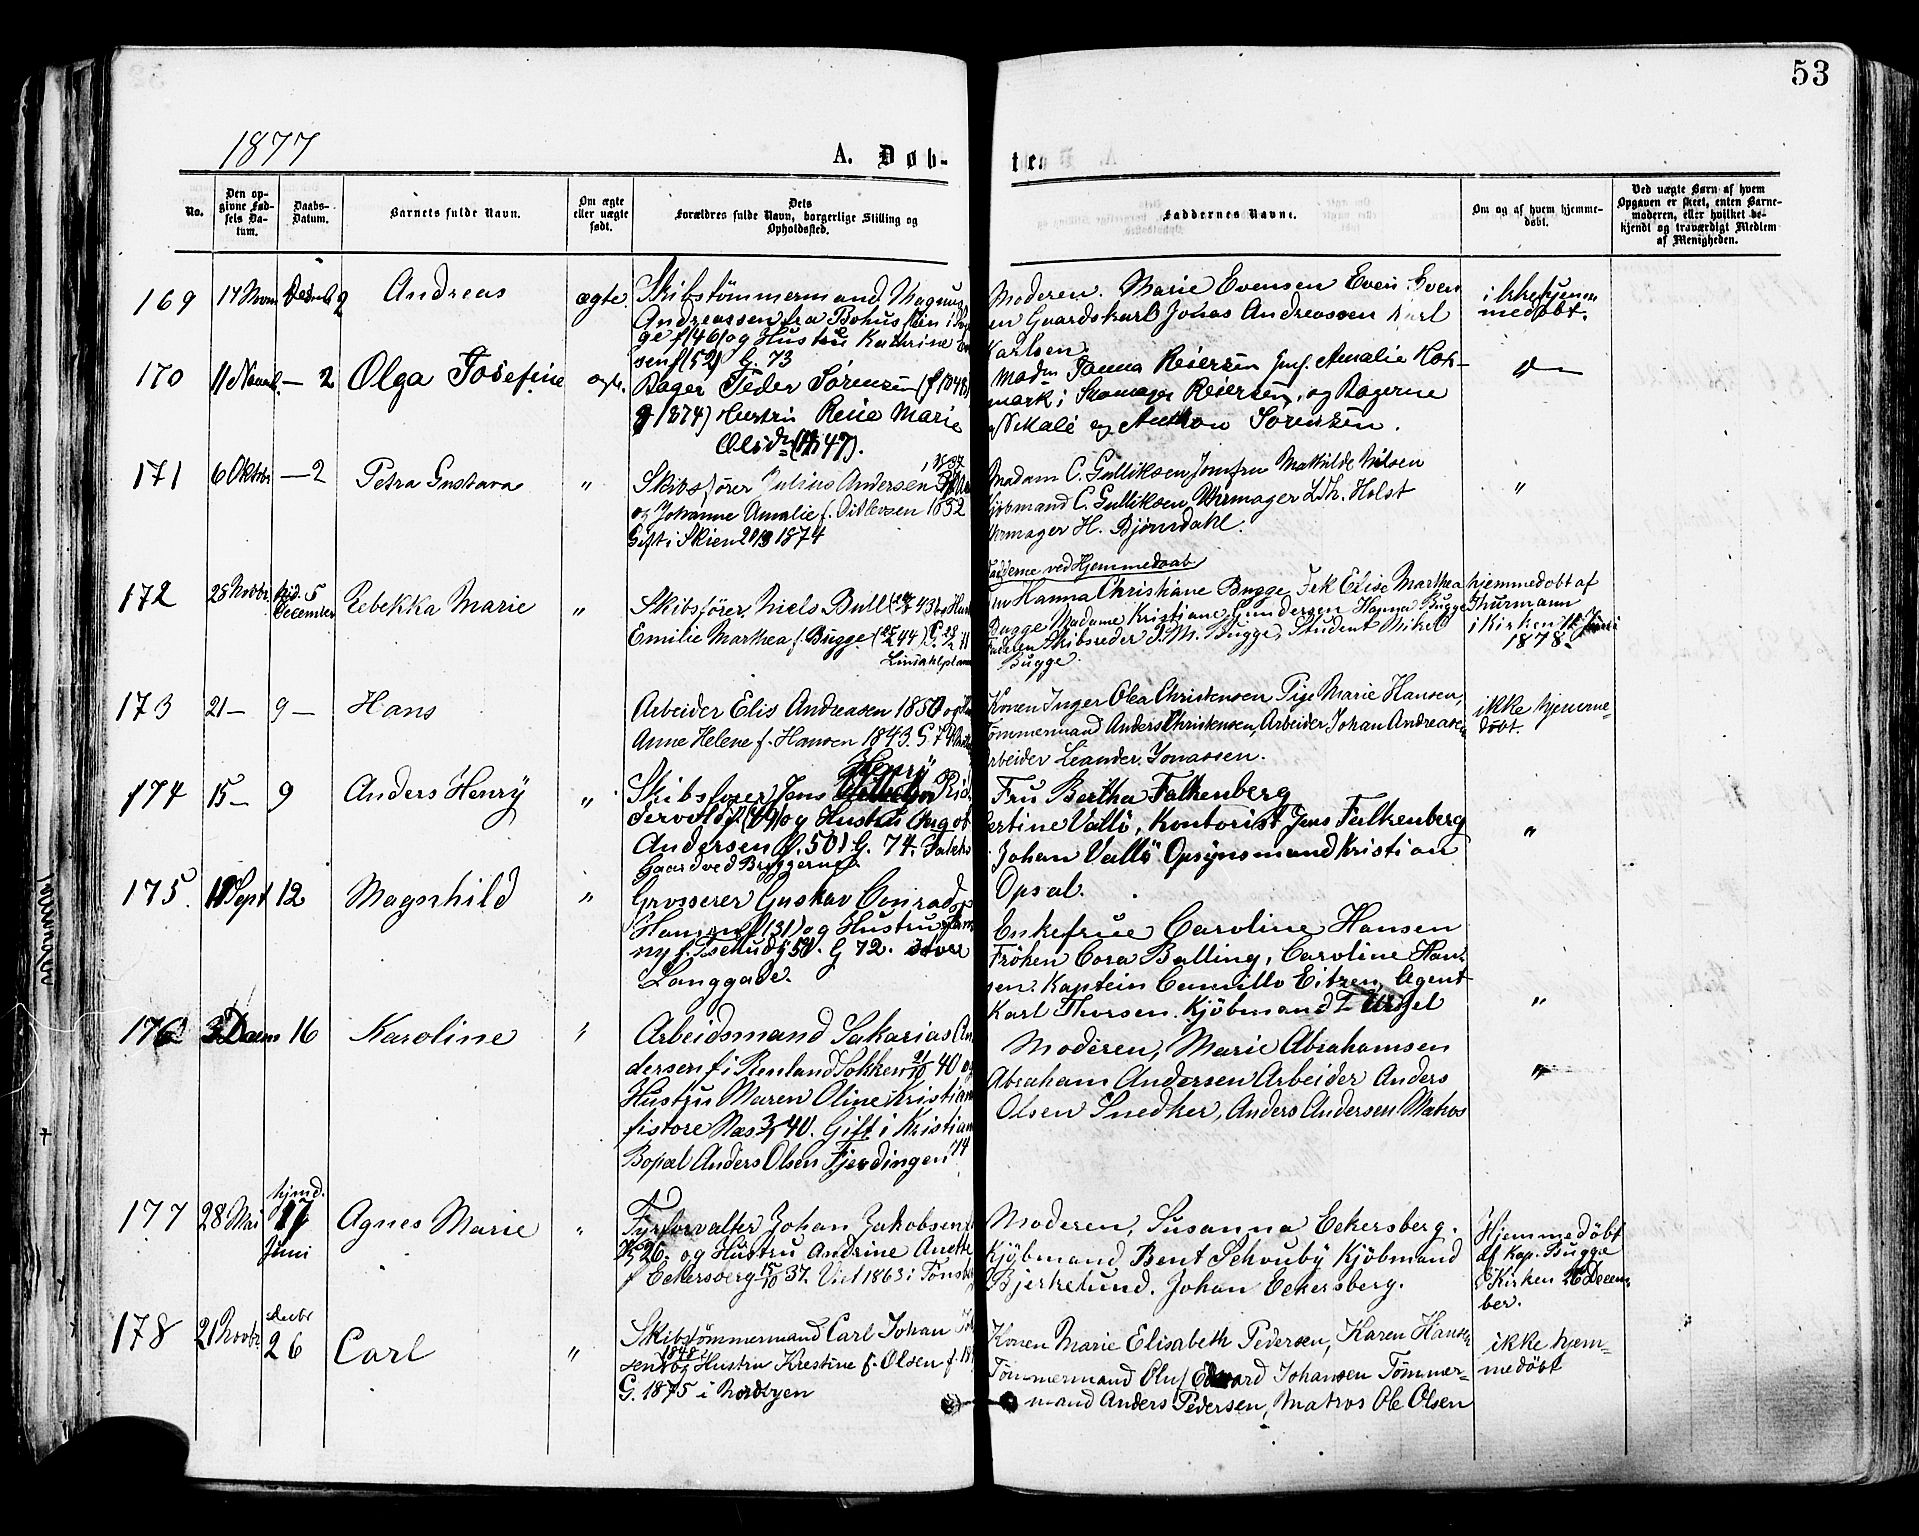 53
1877
A. Døb-
ten
No.
Den op-
givne Fød-
sels Da-
tum.
Daabs-
Datum.
Barnets fulde Navn.
Om ægte
eller uægte
født.
Dets
Forældres fulde Navn, borgerlige Stilling og
Opholdssted.
Faddernes Navne.
Om og af hvem hjemme-
døbt.
Ved uægte Børn af hvem
Opgaven er skeet, enten Barne-
moderen, eller hvilket be-
kjendt og troværdigt Medlem
af Menigheden.
169 17 Decmb 2 Andreas ægte. Skibstømmermand Magnus
Andreassen fra Bohus
f (46) og Hustru Kathrine
sen f (52) G. 73
Moderen. Marie Evensen Even Even
en Guardskarl Jonas Andreassen Karl
Karlsen.
ikke hjem
medøbt.
170 11 Novmb. — 2 Olga Josefine ægte. Bager Peder Sørensen (f. 1848)
g 1874) Hustru Marie
Olsdn (f. 47).
Madn Reiersen Jmf. Amalie Hol-
mark; Skomager Reiersen, og Bagerne
og Anthon Sørensen.
171 6 Oktbr — 2 Petra Gustava " Skibsfører Julius Andersen 1837
og Johanne Amalie f. Ditlevsen 1852
Gift i Skien 1874
Madam C. Gulliksen, Jomfru Mathilde Nilsen
Kjøbmand C. Gulliksen, Uhrmager L. Th. Holst
Uhrmager H. Bjørnsdahl.
"
172 28 Novbr. hjd. 5
December Rebekka Marie " Skibsfører Niels Bull 43 og Hust
Emilie Marthea f. Bugge. 44) G.
Fadderne ved Hjemmedaab
Hanna Christiane Bugge, Frk Elise Marthea
Bugge Madame Kristiane Gundersen Hanna Bugge
Faderen Skibsreder J. M. Bugge, Student Mikel
Bugge.
hjemmedøbt af
Thurmann
i Kirken 12 Juni
1878.
173 21 — 9 — Hans Arbeider Elis Andreasen 1850 og
Anne Helene f. Hansen 1843. G. 74
Konen Inger Olea Christensen, Pige Marie Hansen,
Tømmermand Anders Christensen, Arbeider Johan Andreasen
Arbeider Leander Jonassen.
ikke hjemme-
døbt.
174 15 — 9 Anders Henry " Skibsfører Jens Henry Rid
dervold f (49) og Hustru Ingob
Andersen f. 50) G. 74.
Gaard ved Bryggerne
Fru Bertha Falkenberg
Bertine Vallø, Kontorist Jens Falkenberg
Johan Vallø Opsynsmand Kristian
Opsal.
"
175. 11 Sept 12 Magnhild " Grosserer Gustav Conrad
Hansen f (31) og Hustru Fan
ny f. Tschudy 50. G 72. store
Langgade.
Enkefrue Caroline Hansen
Frøken Cora Balling, Caroline Han
sen. Kaptein Camillo Eitzen, Agent
Karl Thorsen. Kjøbmand
"
176 3 Decm 16 Karoline " Arbeidsmand Sakarias An
dersen f i Renland Sokken 21/10 40 og
Hustru Maren Oline Kristian
f i store Næs 40. Gift i Kristian
Bopæl Anders Olsen Fjerdingen 74
Moderen, Marie Abrahamsen
Abraham Andersen Arbeider Anders
Olsen Snedker, Anders Andersen Matros
"
177 28 Mai hjmd.
17
Juni Agnes Marie " Fyrforvalter Johan Jakobsen
26. og Hustru Andrine Anette
f Eckersberg 15/10 37. Viet 1863 i Tønsb
Moderen, Susanna Eckersberg.
Kjøbmand Bent Schouby Kjøbmand
Bjerkelund. Johan Eckersberg.
Hjemmedøbt
af Kap. Bugge
i Kirken 26 Decem
ber.
178 21 Novbr. Decbr
26 Carl " Skibstømmermand Carl Johan
sen 1848 og Hustru Kristine f. Olsen f.
G. 1875 i Nordbyen
Konen Marie Elisabeth Pedersen, Karen Hansen
Tømmermand Oluf Edvard Johansen Tømmer-
mand Anders Pedersen, Matros Ole Olsen
ikke hjem-
medøbt